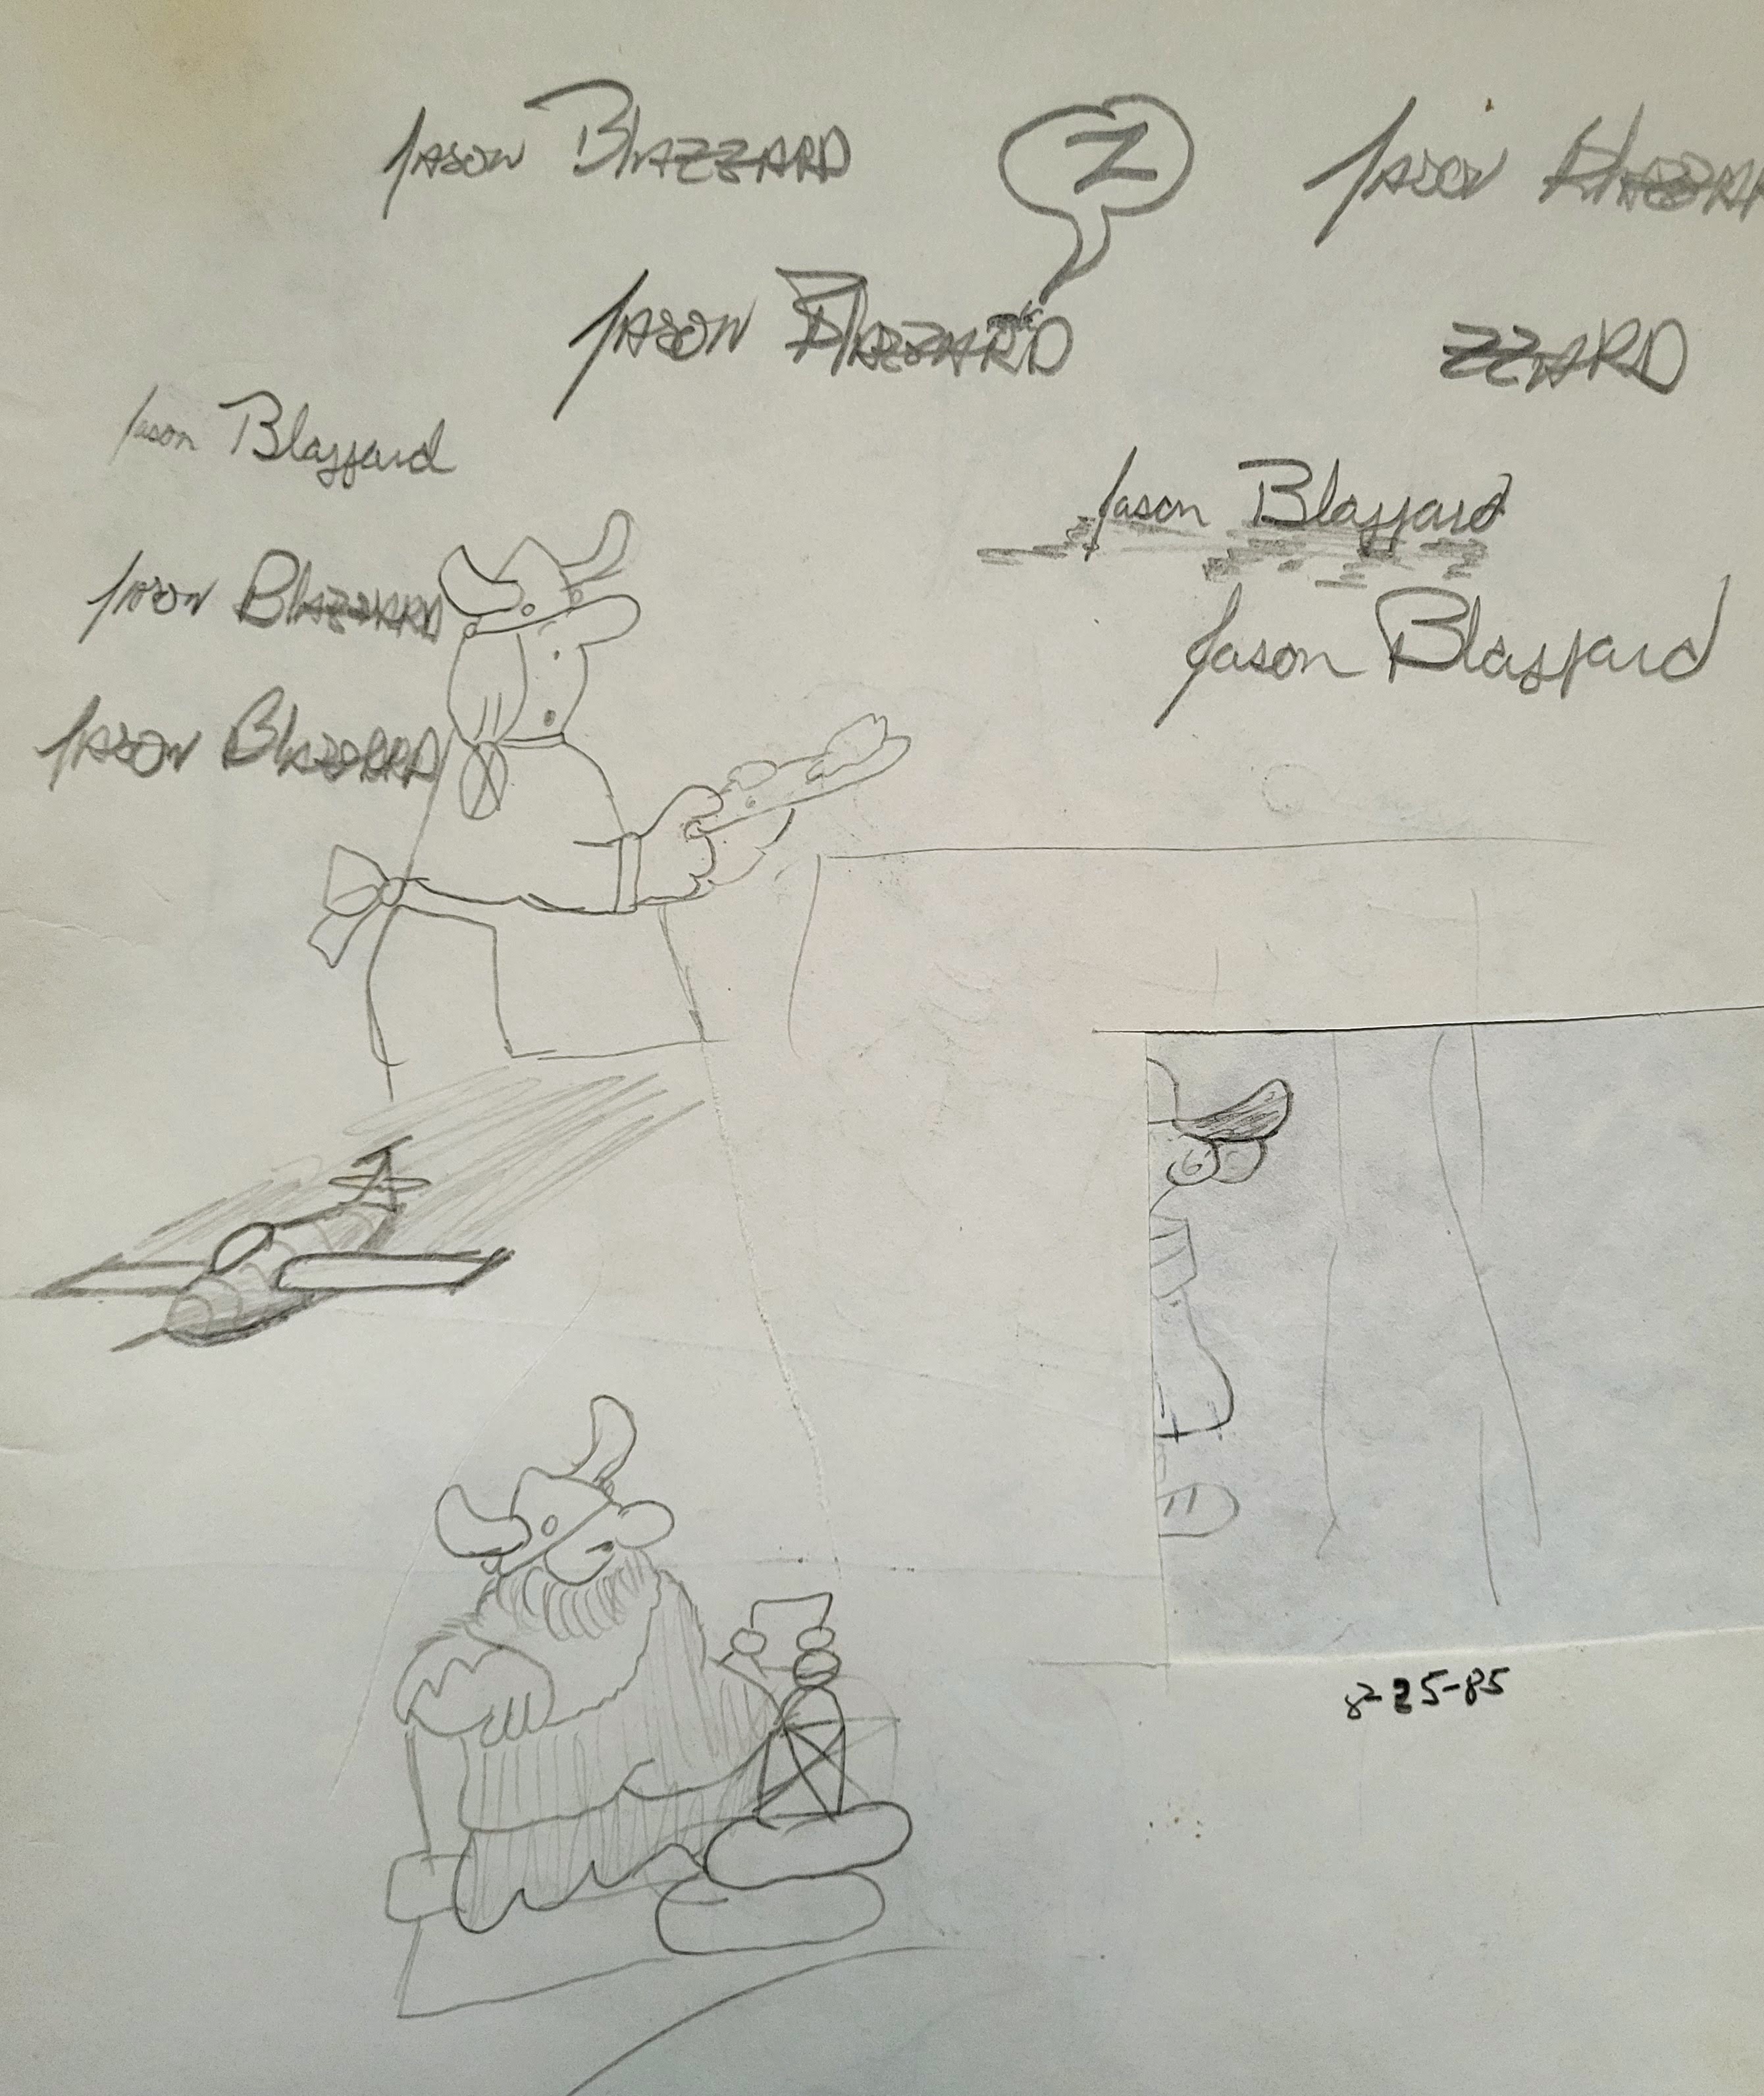 Jason Blazzard
Z
Jason Blazzar
Jason Blazzard
zzard
Jason Blazzard
Jason Blazzard
Jason Blazzard
Jason Blazzard
Jason Blazzard
8-25-85